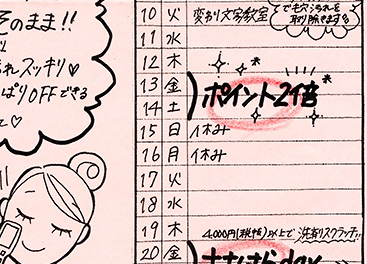 そのまま!!
スッキリ♡
ぱりOFFできる
て♡
10 火 変わり文字教室
でも穴づまりを
取り除きます!
11 水
12 木
13 金
14 土
ポイント2倍*
15 日 休み
16 月 休み
17 火
18 水
19 木 4,000円(税抜)以上で 洗剤スクラッチ!!
20 金 day